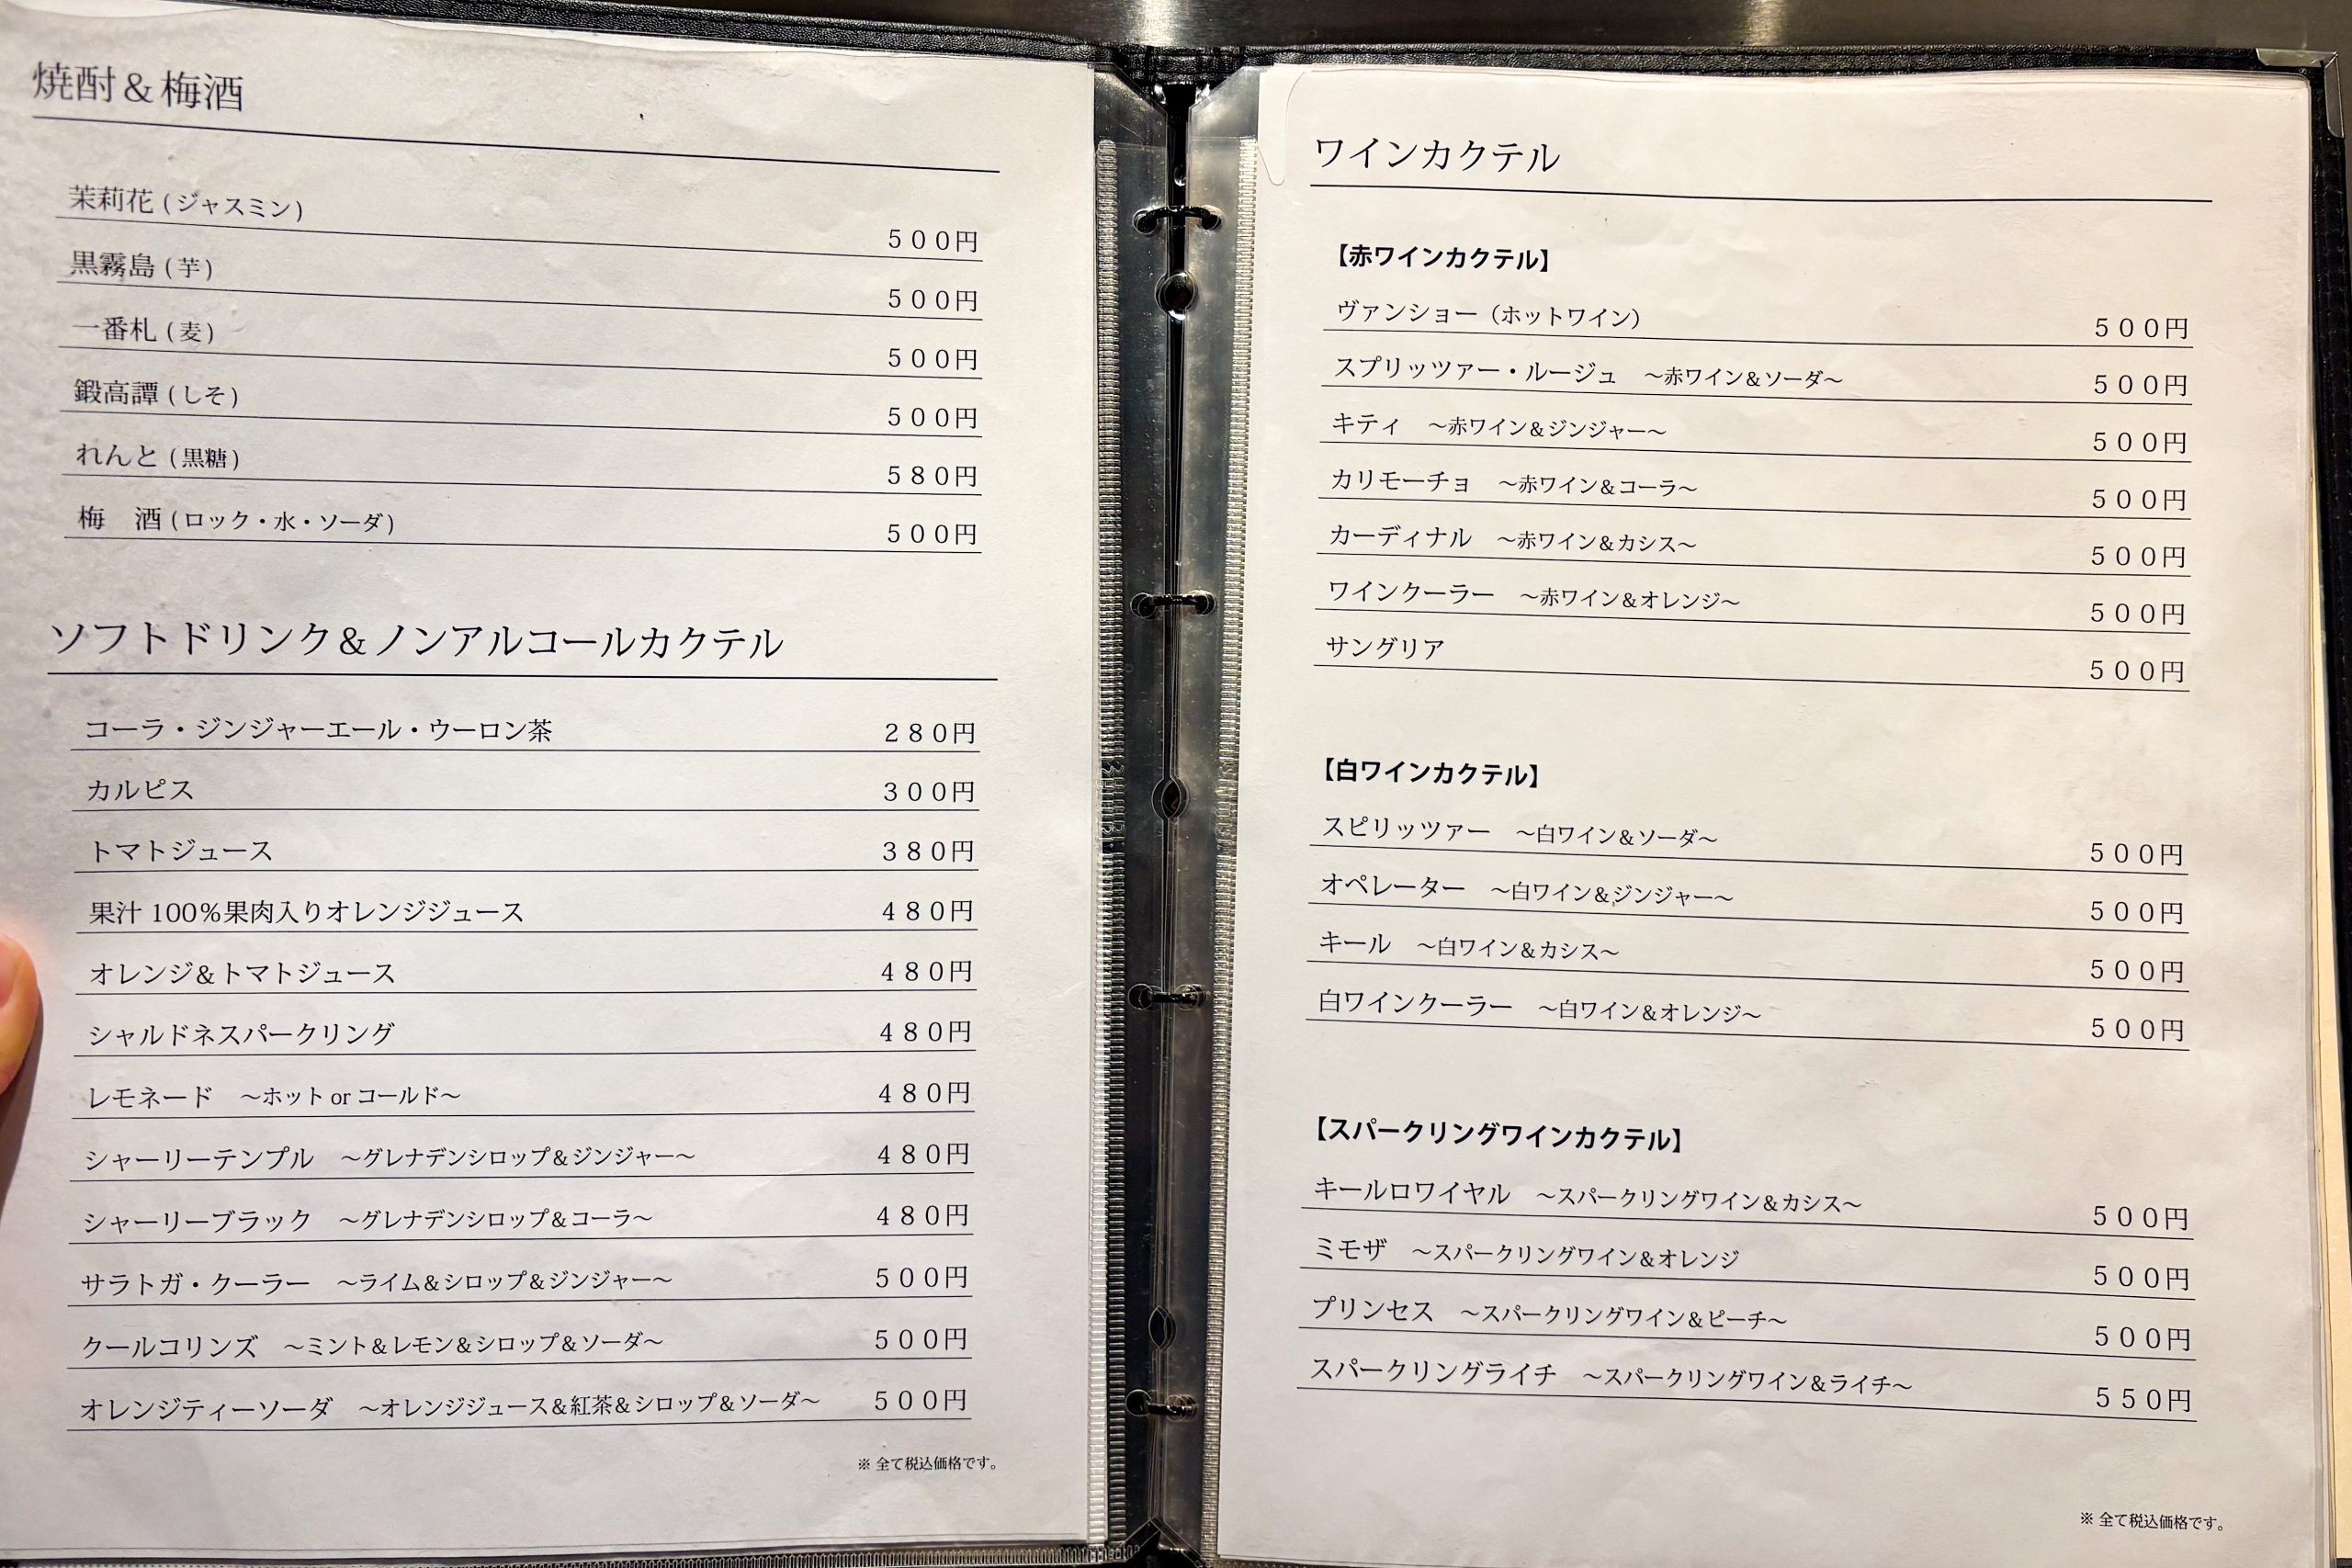 焼酎＆梅酒
茉莉花 (ジャスミン) ５００円
黒霧島 (芋) ５００円
一番札 (麦) ５００円
鍛高譚 (しそ) ５００円
れんと (黒糖) ５８０円
梅　酒 (ロック・水・ソーダ) ５００円
ソフトドリンク＆ノンアルコールカクテル
コーラ・ジンジャーエール・ウーロン茶 ２８０円
カルピス ３００円
トマトジュース ３８０円
果汁 100％果肉入りオレンジジュース ４８０円
オレンジ＆トマトジュース ４８０円
シャルドネスパークリング ４８０円
レモネード　～ホット or コールド～ ４８０円
シャーリーテンプル　～グレナデンシロップ＆ジンジャー～ ４８０円
シャーリーブラック　～グレナデンシロップ＆コーラ～ ４８０円
サラトガ・クーラー　～ライム＆シロップ＆ジンジャー～ ５００円
クールコリンズ　～ミント＆レモン＆シロップ＆ソーダ～ ５００円
オレンジティーソーダ　～オレンジジュース＆紅茶＆シロップ＆ソーダ～ ５００円
※ 全て税込価格です。
ワインカクテル
【赤ワインカクテル】
ヴァンショー（ホットワイン） ５００円
スプリッツァー・ルージュ　～赤ワイン＆ソーダ～ ５００円
キティ　～赤ワイン＆ジンジャー～ ５００円
カリモーチョ　～赤ワイン＆コーラ～ ５００円
カーディナル　～赤ワイン＆カシス～ ５００円
ワインクーラー　～赤ワイン＆オレンジ～ ５００円
サングリア ５００円
【白ワインカクテル】
スピリッツァー　～白ワイン＆ソーダ～ ５００円
オペレーター　～白ワイン＆ジンジャー～ ５００円
キール　～白ワイン＆カシス～ ５００円
白ワインクーラー　～白ワイン＆オレンジ～ ５００円
【スパークリングワインカクテル】
キールロワイヤル　～スパークリングワイン＆カシス～ ５００円
ミモザ　～スパークリングワイン＆オレンジ ５００円
プリンセス　～スパークリングワイン＆ピーチ～ ５００円
スパークリングライチ　～スパークリングワイン＆ライチ～ ５５０円
※ 全て税込価格です。